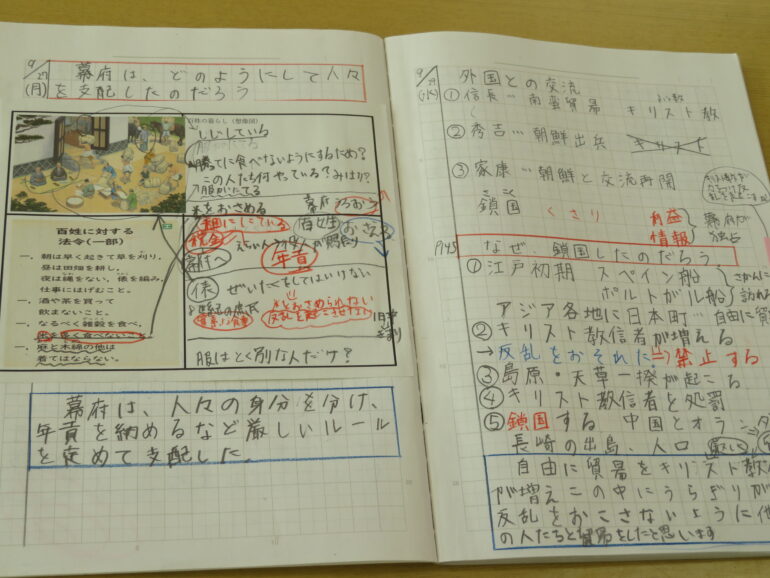 9/27
(月)
幕府は、どのようにして人々
を支配したのだろう
百姓の暮らし(想像図)
勝てに食べないようにするため?
この人たち何やっている?みはり?
米をおさめる
税金
百姓
年貢
幕府へ
俵
ぜいたくをしてはいけない
反乱を起こさせない
服はとく別な人だけ?
百姓に対する
法令(一部)
一、朝は早く起きて草を刈り、
昼は田畑を耕し、
夜は縄をない、俵を編み、
仕事にはげむこと。
一、酒や茶を買って
飲まないこと。
一、なるべく雑穀を食べ、
米を多く食べないこと
一、麻と木綿の他は
着てはならない。
幕府は、人々の身分を分け、
年貢を納めるなど厳しいルール
を定めて支配した。
9/29
(水)
外国との交流
①信長…南蛮貿易 キリスト教
②秀吉…朝鮮出兵 キリスト
③家康…朝鮮と交流再開
さこく
鎖国 くさり
利益
情報
幕府が
独占
P145
なぜ、鎖国したのだろう
①江戸初期 スペイン船
ポルトガル船
さかんに
訪れ
アジア各地に日本町…自由に貿
②キリスト教信者が増える
→反乱をおそれた⇒禁止する
③島原・天草一揆が起こる
④キリスト教信者を処罰
⑤鎖国する 中国とオランダ
長崎の出島、人口
自由に貿易をキリスト教
が増えこの中にうらぎりが
反乱をおこさないように他
の人たちと貿易をしたと思います